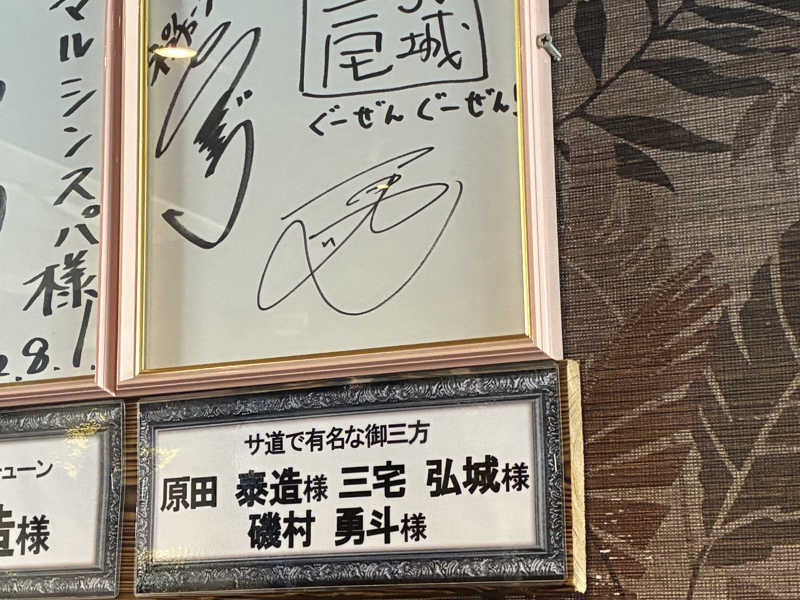 マルシンスパ様
.8.1.
三宅
弘城
ぐーぜん ぐーぜん!
サ道で有名な御三方
原田 泰造様 三宅 弘城様
磯村 勇斗様
チューン
造様